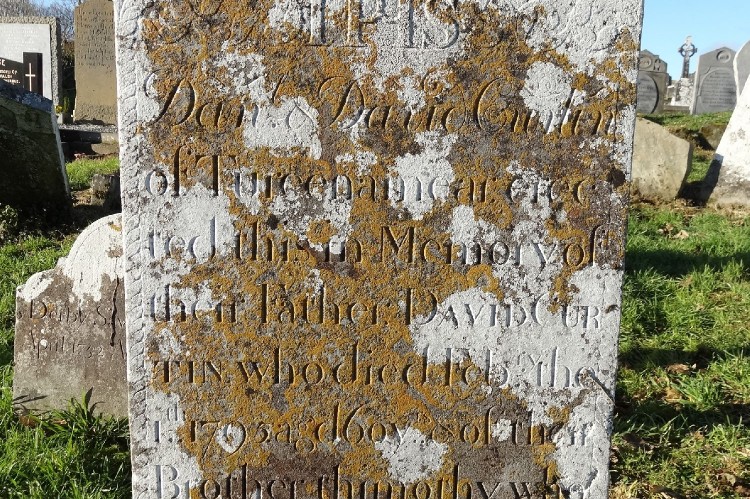 IHS
Danl. & David Curtin
of Tureenamear erec
ted this in Memory of
their Father DAVID CUR
TIN who died Febry. the
1st. 1793 agd 60 ys & of their
Brother thimothy who